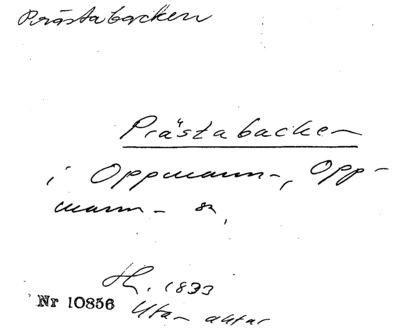 Prästabacken
Prästabacken
i Oppmann-, Opp-
mann- sn,
1893
Nr 10856
Utan aktar